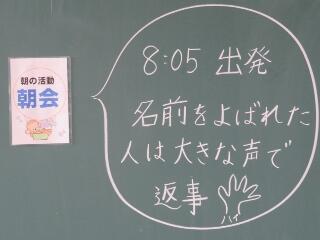 朝の活動
朝会
8:05 出発
名前をよばれた
人は大きな声で
返事
ハイ